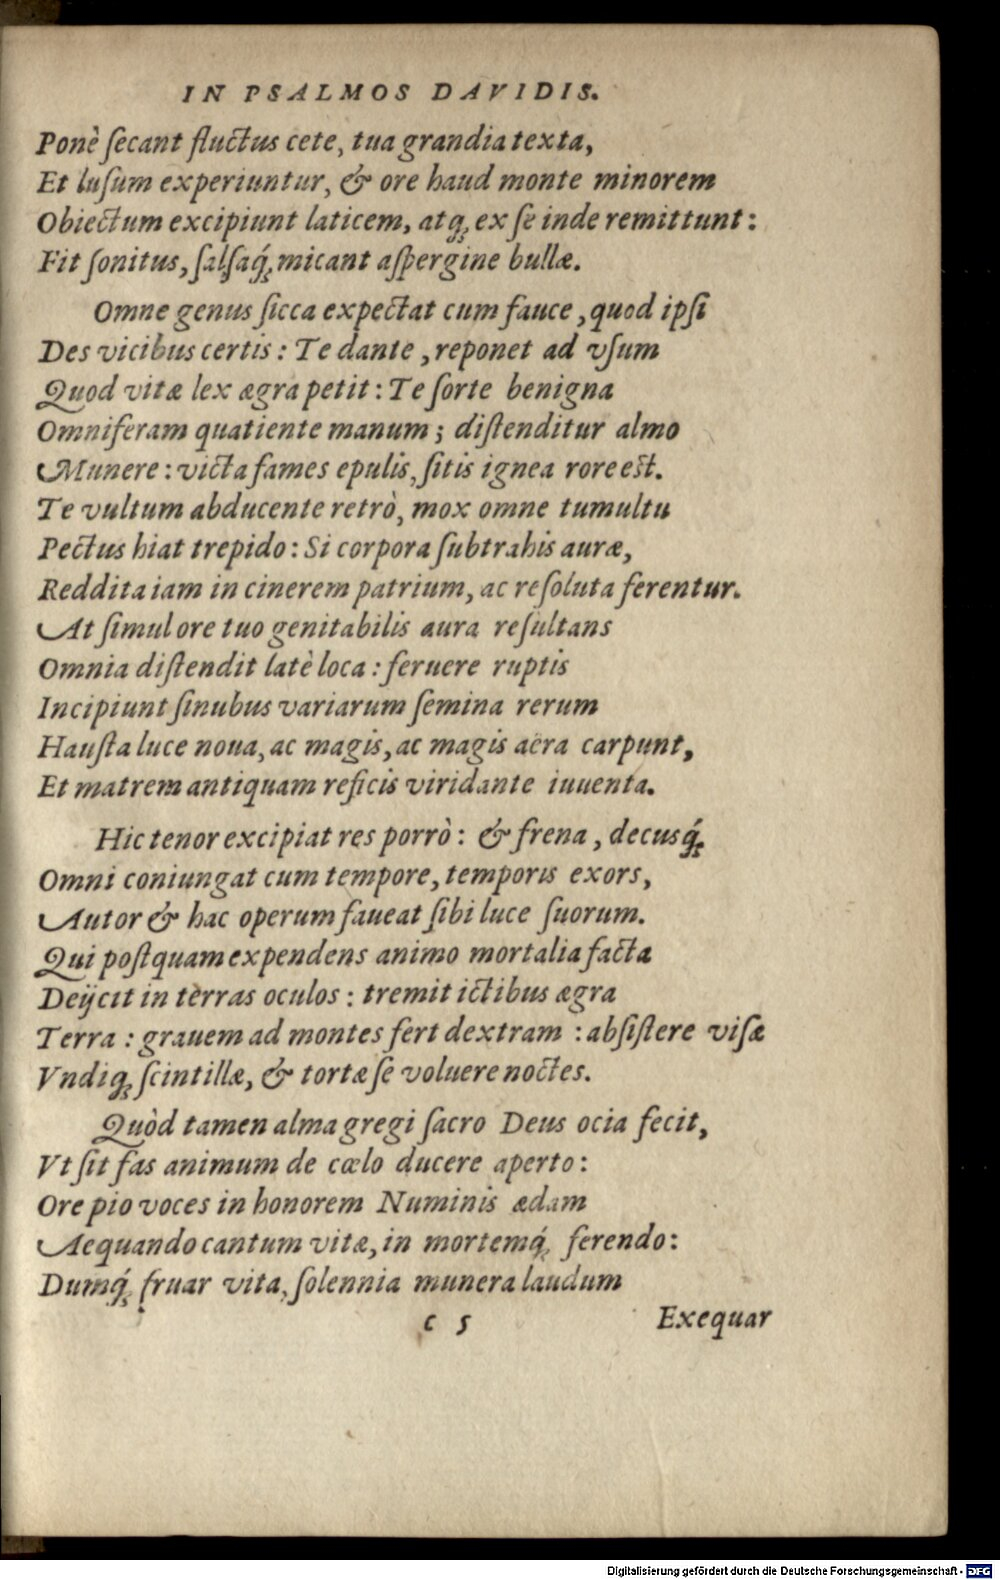 IN PSALMOS DAVIDIS.
Ponè ſecant fluctus cete, tua grandia texta,
Et luſum experiuntur, & ore haud monte minorem
Obiectum excipiunt laticem, atq; ex ſe inde remittunt:
Fit ſonitus, ſalſaq́; micant aſpergine bullæ.
Omne genus ſicca expectat cum fauce, quod ipſi
Des vicibus certis: Te dante, reponet ad vſum
Quod vitæ lex ægra petit: Te ſorte benigna
Omniferam quatiente manum; diſtenditur almo
Munere: victa fames epulis, ſitis ignea rore est.
Te vultum abducente retrò, mox omne tumultu
Pectus hiat trepido: Si corpora ſubtrahis auræ,
Reddita iam in cinerem patrium, ac reſoluta ferentur.
At ſimul ore tuo genitabilis aura reſultans
Omnia diſtendit latè loca: feruere ruptis
Incipiunt ſinubus variarum ſemina rerum
Hauſta luce noua, ac magis, ac magis aëra carpunt,
Et matrem antiquam reficis viridante iuuenta.
Hic tenor excipiat res porrò: & frena, decusq́;
Omni coniungat cum tempore, temporis exors,
Autor & hac operum faueat ſibi luce ſuorum.
Qui poſtquam expendens animo mortalia facta
Deijcit in terras oculos: tremit ictibus ægra
Terra: grauem ad montes fert dextram: abſiſtere viſæ
Vndiq; ſcintillæ, & tortæ ſe voluere noctes.
Quòd tamen alma gregi ſacro Deus ocia fecit,
Vt ſit fas animum de cœlo ducere aperto:
Ore pio voces in honorem Numinis ædam
Aequando cantum vitæ, in mortemq́; ferendo:
Dumq́; fruar vita, ſolennia munera laudum
c 5
Exequar
Digitalisierung gefördert durch die Deutsche Forschungsgemeinschaft - DFG